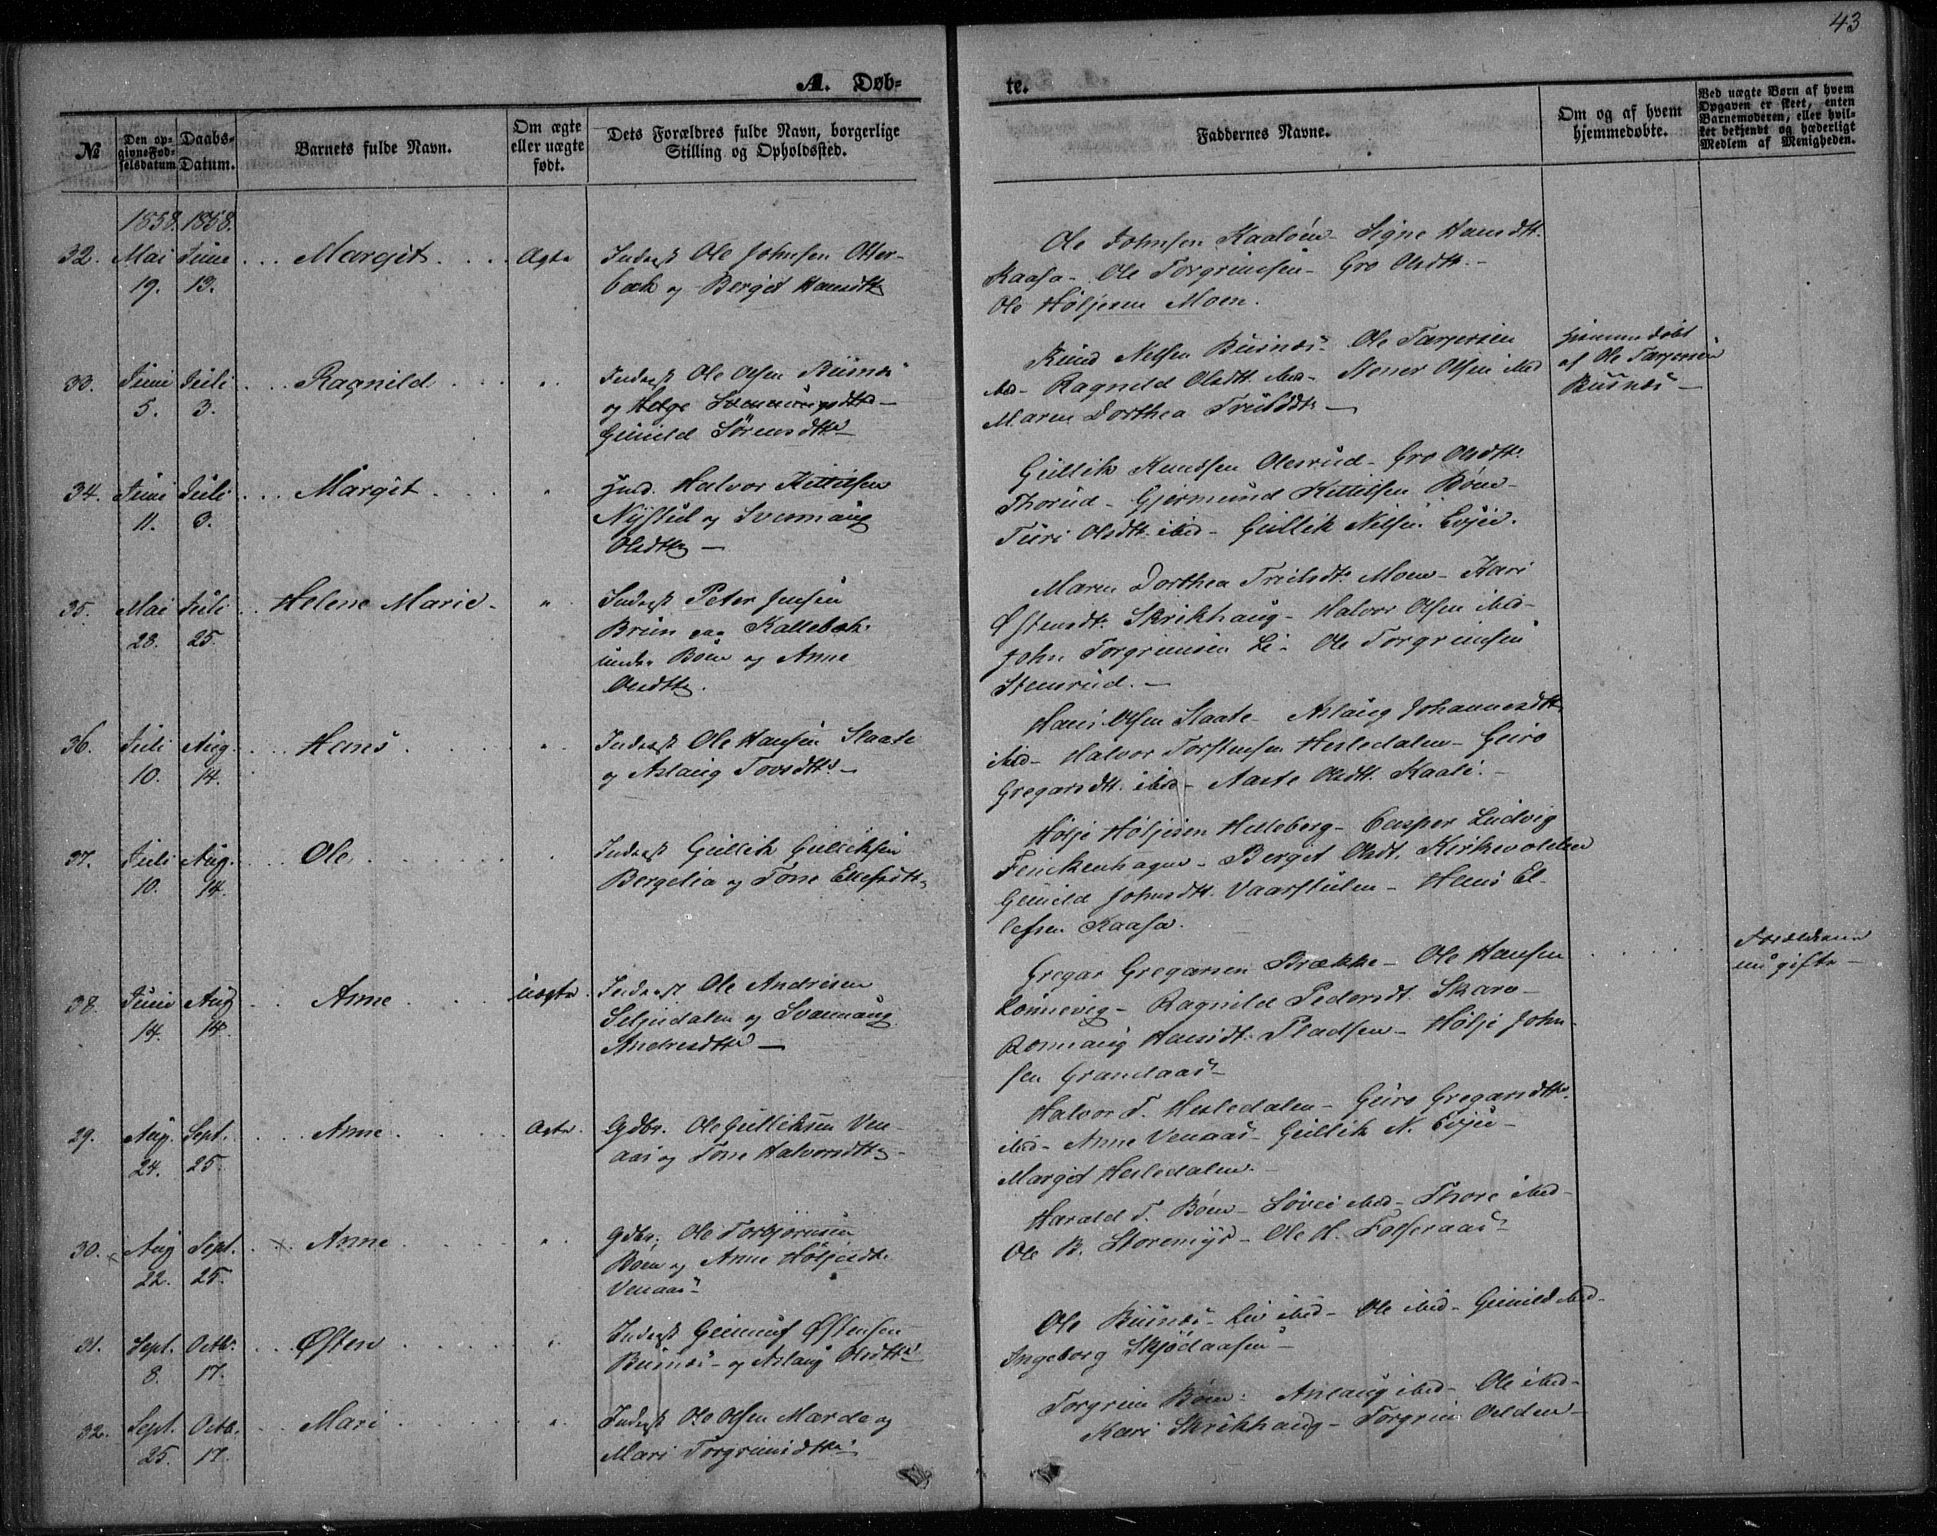 43
A. Døb-
te.
№
Den op-
givne Fød-
selsdatum
Daabs-
Datum.
Barnets fulde Navn.
Om ægte
eller uægte
født.
Dets Forældres fulde Navn, borgerlige
Stilling og Opholdssted.
Faddernes Navne.
Om og af hvem
hjemmedøbte.
Ved uægte Børn af hvem
Opgaven er skeet, enten
Barnemoderen, eller hvil-
ket bekjendt og hæderligt
Medlem af Menigheden.
1858. 1858.
32. Mai Juni Margit Ægte Inderst Ole Johnsen Otter-
19. 13. bæk og Bergit Hansdtr
Ole Johnsen Kaaløen - Signe Hansdtr.
Kaasa - Ole Torgrimsen - Gro Olsdtr. -
Ole Høljesen Moen.
33. Juni Juli Ragnild " Inderst Ole Olsen Busnæs
5. 3. og Helge
Gunild Sørensdtr -
Knud Nilsen Busnæs - Ole Tarjersen
ibid - Ragnild Olsdtr. ibid - Stener Olsen ibid
Maren Dorthea Trulsdtr -
Hjemmedøbt
af Ole Tarjersen
Busnæs -
34. Juni Juli Margit " Ind. Halvor Kittilsen
11. 3. Nystul og Svanaug
Olsdtr -
Gullik Knudsen Olesrud - Gro Olsdtr.
Thorud - Gjermund Kittilsen Bøen -
Turi Olsdtr. ibid - Gullik Nilsen Evju.
35. Mai Juli Helene Marie " Inderst Peter Jensen
28. 25. Brun paa Kallebæk
under Bøen og Anne
Olsdtr.
Maren Dorthea Trulsdtr Moen - Kari
Østensdtr. Skrikhaug - Halvor Olsen ibid -
John Torgrimsen Li - Ole Torgrimsen
Stensrud. -
36. Juli Aug. Hans " Inderst Ole Hansen Slaate
10. 14. og Aslaug Tovsdtr. -
Hans Olsen Slaate - Aslaug Johannesdtr.
ibid - Halvor Torstensen Hesledalen - Guro
Gregarsdtr. ibid - Aaste Olsdtr. Kaali. -
37. Juli Aug. Ole Inderst Gullik Gulliksen
10. 14. Bergelia og Tone Ellefsdtr
Hølje Høljesen Helleberg - Casper Ludvig
Finckenhagen - Berget Olsdt. Kirkevolden
Gunild Johnsdtr. Vaarstulen - Hans El-
lefsen Kaasa.
38. Juni Aug Anne Uægte Inderst Ole Andresen
14. 14. Seljudalen og Svanaug
Andresdtr -
Gregar Gregarsen Brække - Ole Hansen
Lønnevig - Ragnild Pedersdt. Skare -
Rønnaug Hansdt. Pladsen - Hølje John-
sen Grandaas -
Forældrene
nu gifte -
29. Aug. Sept. Anne Ægte Gdbr. Ole Gulliksen Ven-
24. 25. aas og Tone Halvorsdtr -
Halvor T. Hesledalen - Guro Gregarsdtr.
ibid - Anne Venaas - Gullik N. Evju -
Margit Hesledalen. -
30. Aug Sept. Anne " Gdbr. Ole Torbjørnsen
22. 25. Bøen og Anne Høljesdtr
Venaas -
Harald T. Bøen - Løvei ibid - Thore ibid -
Ole B. Storemyr - Ole H. Folseraas -
31. Sept. Octbr. Østen " Inderst Gunnuf Østensen
8. 17. Busnæs - og Aslaug Olsdtr
Ole Busnæs - Liv ibid - Ole ibid - Gunild ibid -
Ingeborg Skjødaasen -
32. Sept. Octb. Mari " Inderst Ole Olsen Mærde og
25. 17. Mari Torgrimsdtr
Torgrim Bøen - Anlaug ibid - Ole ibid -
Kari Skrikhaug - Torgrim Oelden -